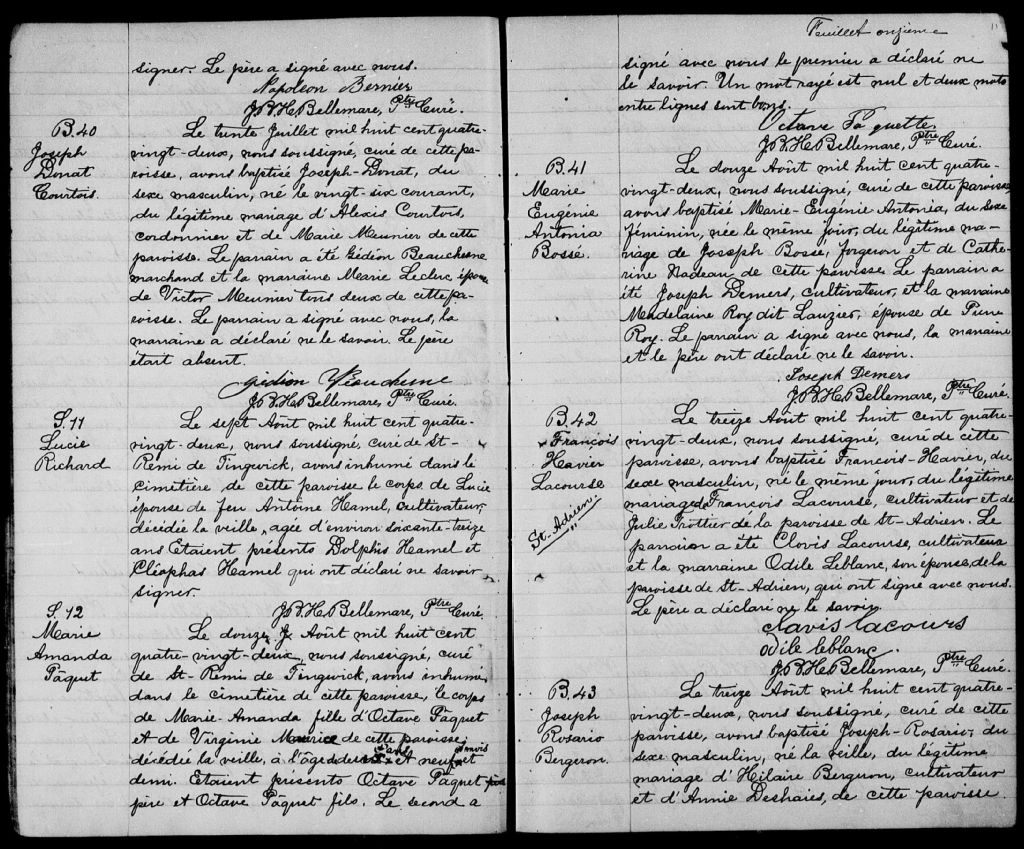 signer. Le père a signé avec nous.
Napoleon Bernier
J.B.H. Bellemare, Ptre Curé.
B. 40
Joseph
Donat
Courtois.
Le trente Juillet mil huit cent quatre-
vingt-deux, nous soussigné, curé de cette pa-
roisse, avons baptisé Joseph-Donat, du
sexe masculin, né le vingt-six courant,
du légitime mariage d'Alexis Courtois,
cordonnier et de Marie Meunier de cette
paroisse. Le parrain a été Gédéon Beauchesne
marchand et la marraine Marie Leclerc épouse
de Victor Meunier tous deux de cette pa-
roisse. Le parrain a signé avec nous, la
marraine a déclaré ne le savoir. Le père
était absent.
J.B.H. Bellemare, Ptre Curé.
S. 11
Lucie
Richard
Le sept Août mil huit cent quatre-
vingt-deux, nous soussigné, curé de St-
Remi de Tingwick, avons inhumé dans le
cimetière de cette paroisse le corps de Lucie
épouse de feu Antoine Hamel, cultivateur,
décédée la veille, agée d'environ soixante-treize
ans Etaient présents Dolphis Hamel et
Cléophas Hamel qui ont déclaré ne savoir
signer.
J.B.H. Bellemare, Ptre Curé
S. 12
Marie
Amanda
Pâquet
Le douze Août mil huit cent
quatre-vingt-deux, nous soussigné, curé
de St-Remi de Tingwick, avons inhumé
dans le cimetière de cette paroisse, le corps
de Marie-Amanda fille d'Octave Pâquet
et de Virginie de cette paroisse,
décédée la veille, à l'âge de ans et neuf mois et
demi. Etaient présents Octave Pâquet
père et Octave Pâquet fils. Le second a
Feuillet onzième
11
signé avec nous le premier a déclaré ne
le savoir. Un mot rayé est nul et deux mots
entre lignes sont bons.
Octave Pâquette.
J.B.H. Bellemare, Ptre Curé.
B. 41
Marie
Eugénie
Antonia
Bossé.
Le douze Août mil huit cent quatre-
vingt-deux, nous soussigné, curé de cette paroisse
avons baptisé Marie-Eugénie Antonia, du sexe
féminin, née le même jour, du légitime ma-
riage de Joseph Bossé, forgeron, et de Cathe-
rine Nadeau de cette paroisse. Le parrain a
été Joseph Demers, cultivateur, et la marraine
Madelaine Roy dit Lauzier, épouse de Pierre
Roy. Le parrain a signé avec nous, la marraine
et le père ont déclaré ne le savoir.
Joseph Demers
J.B.H. Bellemare, Ptre Curé.
B. 42
François
Xavier
Lacourse
St-Adrien.
Le treize Août mil huit cent quatre-
vingt-deux, nous soussigné, curé de cette
paroisse, avons baptisé François-Xavier, du
sexe masculin, né le même jour, du légitime
mariage de François Lacourse, cultivateur et de
Julie Trottier de la paroisse de St-Adrien. Le
parrain a été Clovis Lacourse, cultivateur
et la marraine Odile Leblanc, son épouse, de la
paroisse de St-Adrien, qui ont signé avec nous.
Le père a déclaré ne le savoir.
clavis lacours
odile leblanc.
J.B.H. Bellemare, Ptre Curé.
B. 43
Joseph
Rosario
Bergeron.
Le treize Août mil huit cent quatre-
vingt-deux, nous soussigné, curé de cette
paroisse, avons baptisé Joseph-Rosario, du
sexe masculin, né la veille, du légitime
mariage d'Hilaire Bergeron, cultivateur
et d'Annie Deshaies, de cette paroisse.